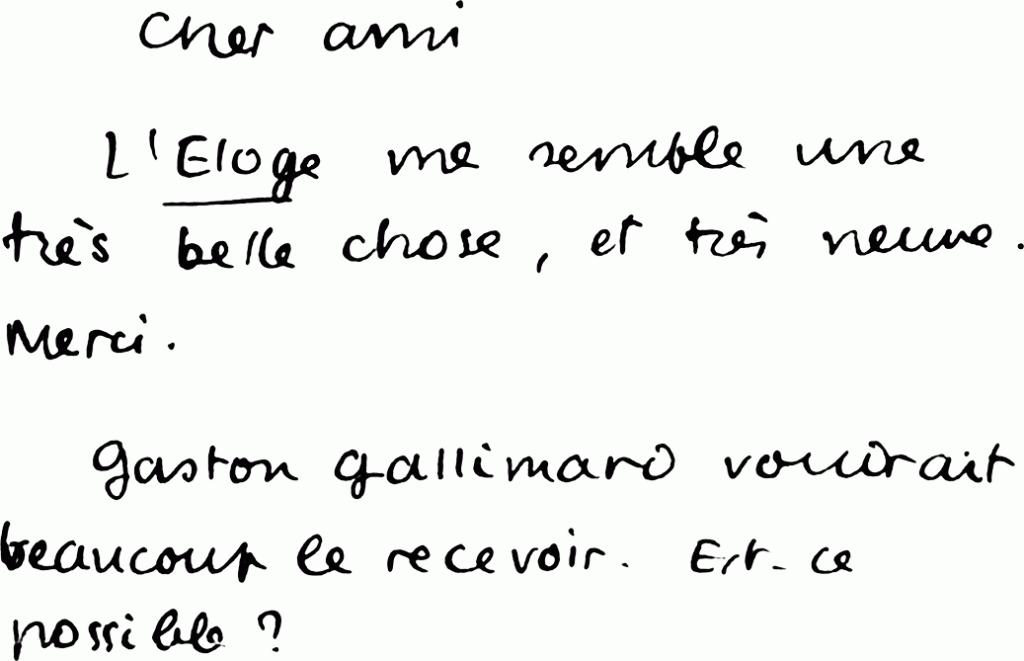 Cher ami
L'Eloge me semble une
très belle chose, et très neuve.
Merci.
Gaston Gallimard voudrait
beaucoup le recevoir. Est-ce
possible ?